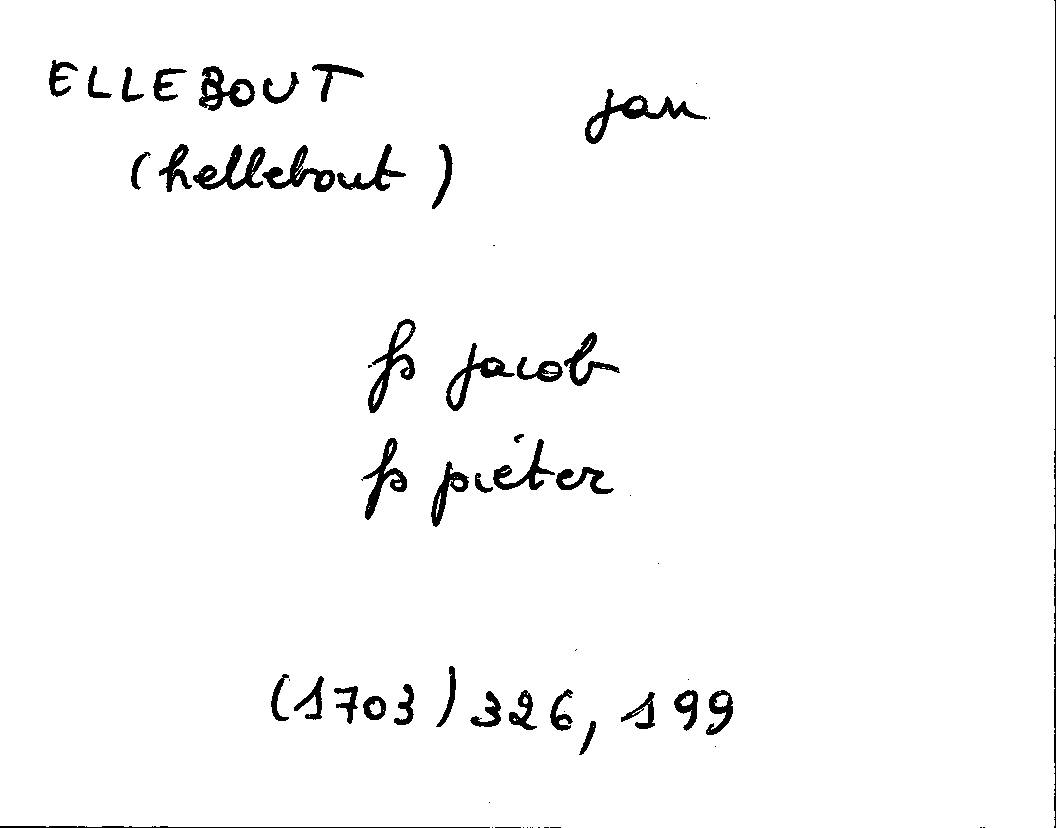 ELLEBOUT jan
(hellebout)
fs jacob
fs pieter
(1703) 326, 199